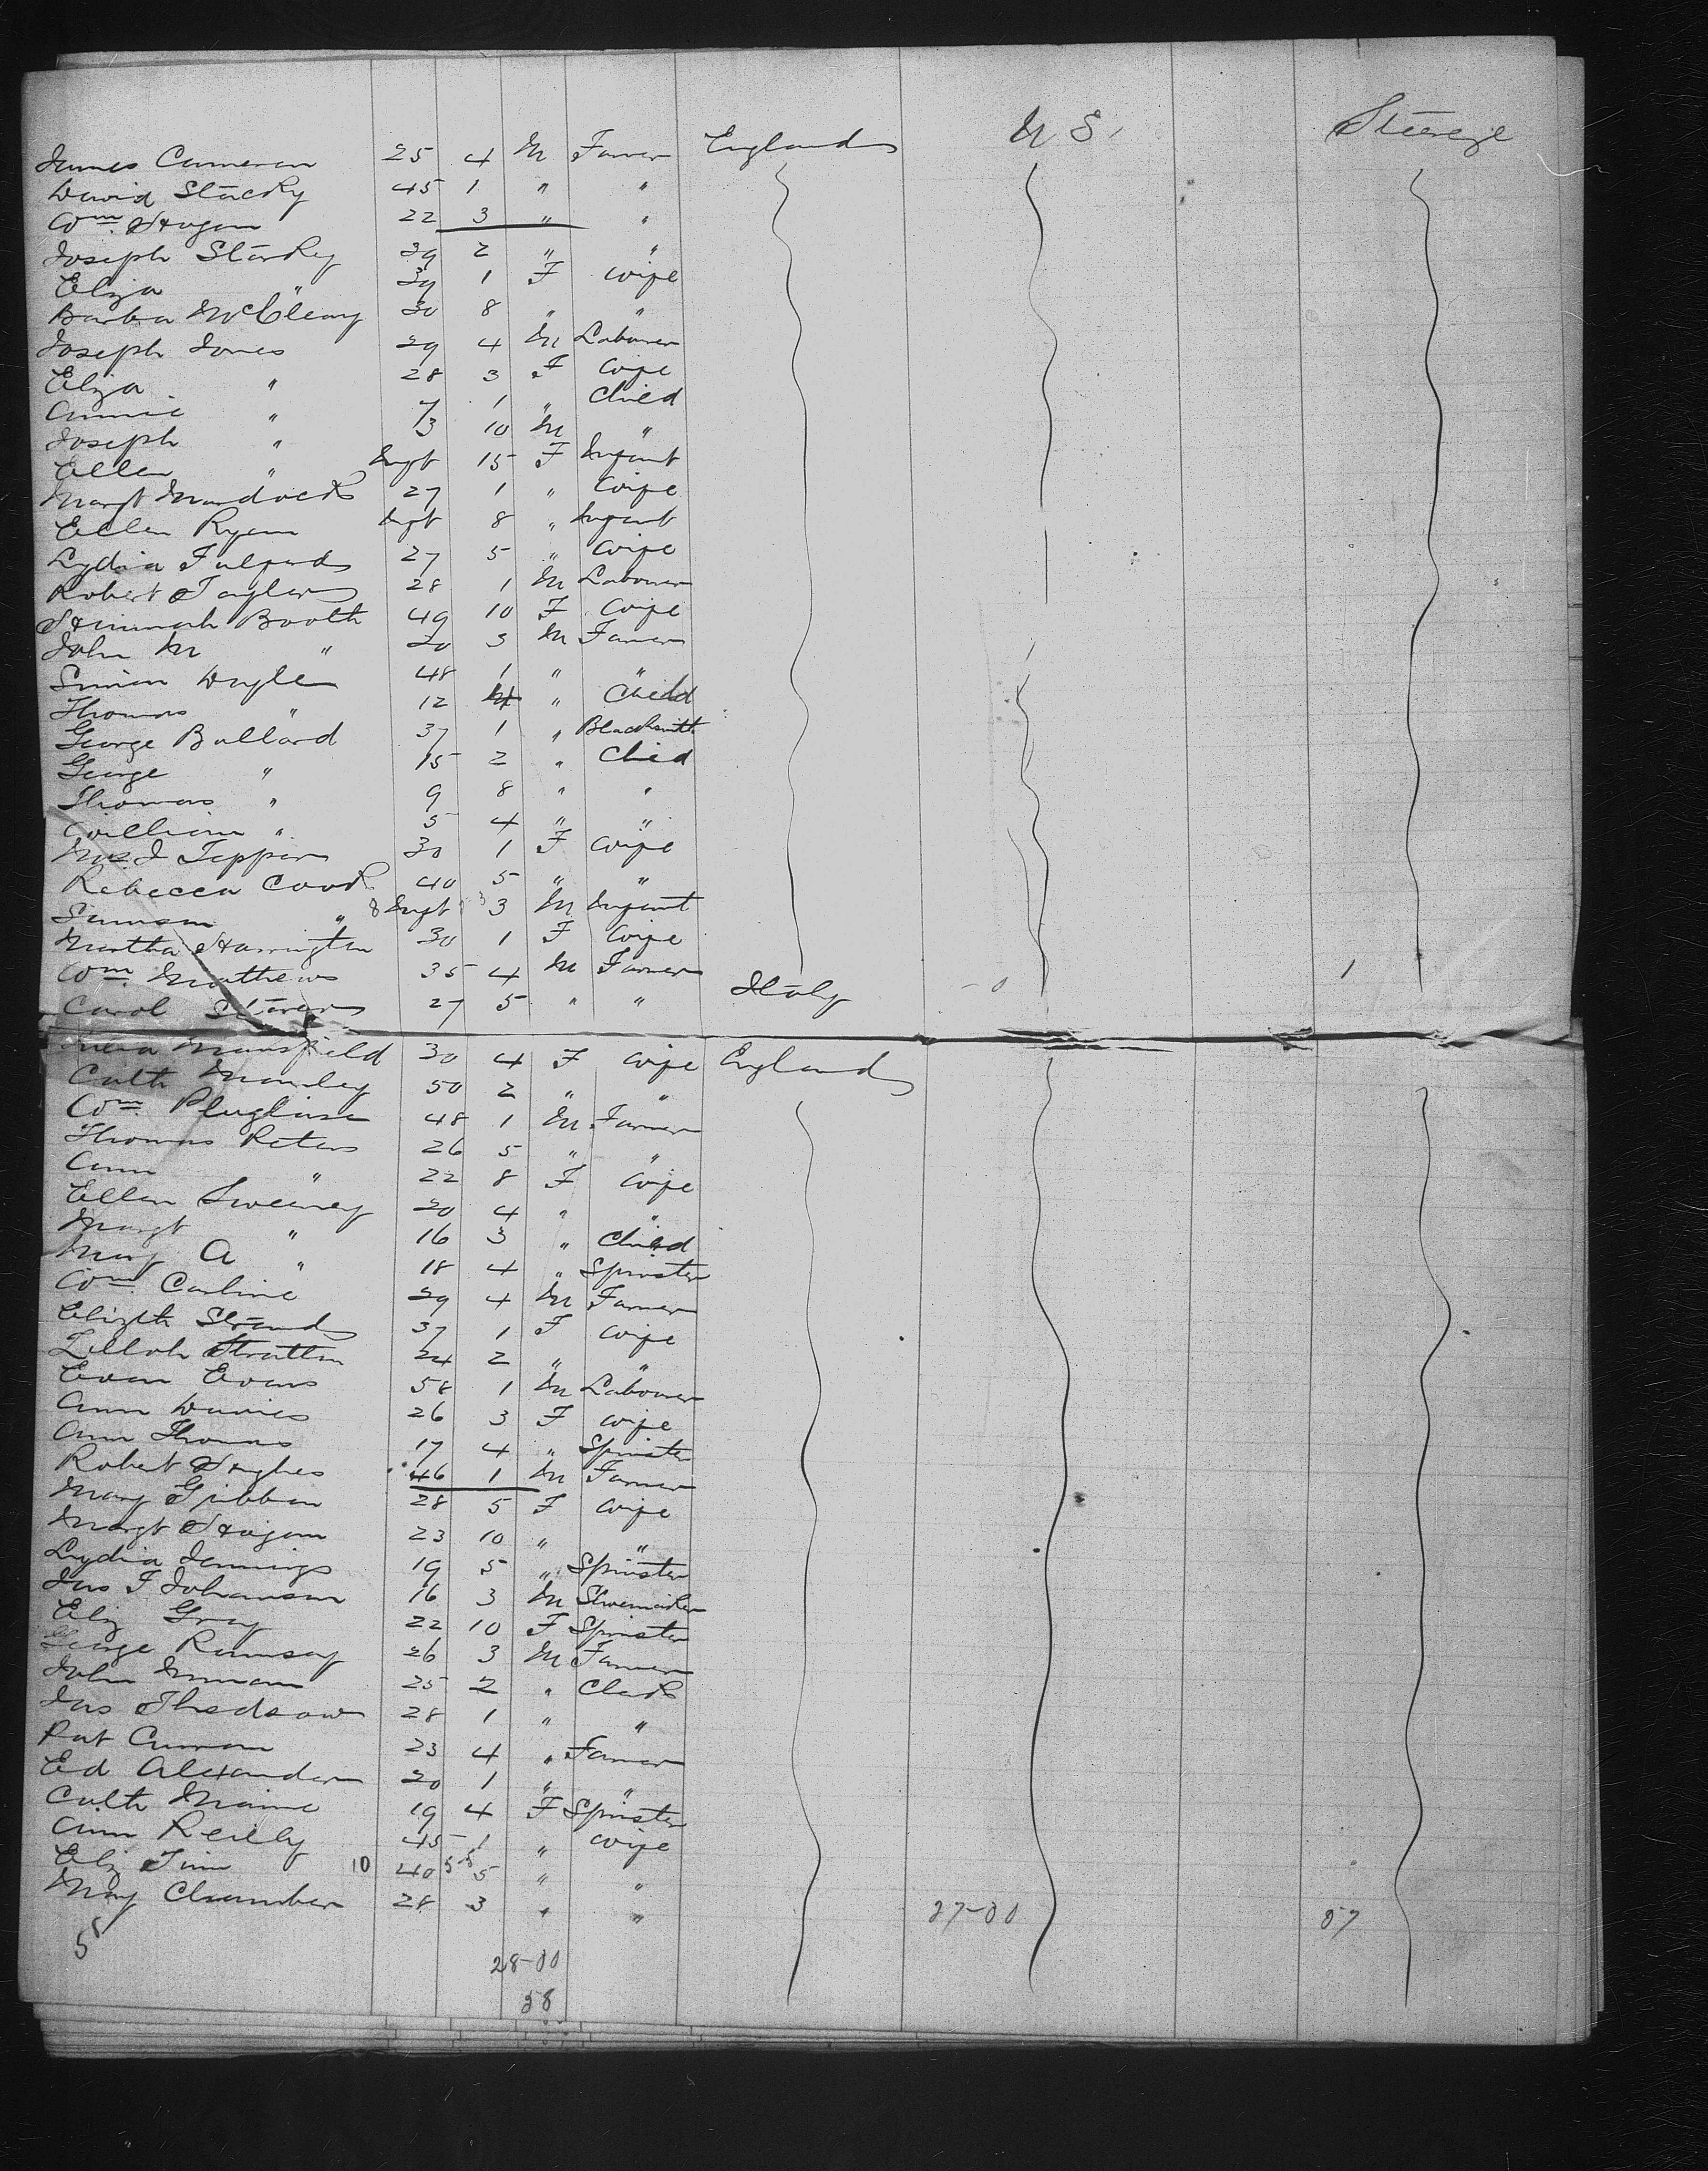 James Cameron 25 4 M Farmer England U S. Steerage
David Stacky 45 1 " "
Wm Hogan 22 3 " "
Joseph Starkey 39 2 " "
Eliza " 39 1 F Wife
McCleary 30 8 " "
Joseph Jones 29 4 M Labourer
Eliza " 28 3 F Wife
Annie " 7 1 " Child
Joseph " 3 10 M "
Ellen " Inft 15 F Infant
Margt Murdock 27 1 " Wife
Ellen Ryan Inft 8 " Infant
Lydia 27 5 " Wife
Robert Taylor 28 1 M Labourer
Hannah Booth 49 10 F Wife
John M " 20 3 M Farmer
Simon 48 1 " "
Thomas " 12 4 " Child
George Ballard 37 1 " Blacksmith
George " 15 2 " Child
Thomas " 9 8 " "
William " 5 4 " "
Mrs J Tepper 30 1 F Wife
Rebecca Cook 40 5 " "
" 8 Inft 3 M Infant
Martha Harrington 30 1 F Wife
Wm Matthews 35 4 M Farmer
Carol 27 5 " " Italy - 0 1
Mansfield 30 4 F Wife England
Cath Manley 50 2 " "
Wm 48 1 M Farmer
Thomas Peters 26 5 " "
Ann " 22 8 F Wife
Ellen Sweeney 20 4 " "
Margt " 16 3 " Child
Mary A " 18 4 " Spinster
Wm Carline 29 4 M Farmer
Elizth 37 1 F Wife
Zillah Stratton 24 2 " "
Evan Evans 58 1 M Labourer
Ann Davies 26 3 F Wife
Ann Thomas 17 4 " Spinster
Robert Hughes 46 1 M Farmer
Mary Gribben 28 5 F Wife
Margt Hogan 23 10 " "
Lydia Jennings 19 5 " Spinster
Jas F Johanson 16 3 M Shoemaker
Eliz Gray 22 10 F Spinster
George Ramsay 26 3 M Farmer
John 25 2 " Clerk
Jas 28 1 " "
Pat Curran 23 4 " Farmer
Ed Alexander 20 1 " "
Cath 19 4 F Spinster
Ann Reilly 45 1 " Wife
Eliz 10 40 5 " "
May Chamber 28 3 " " 27-00 57
58
28-00
58